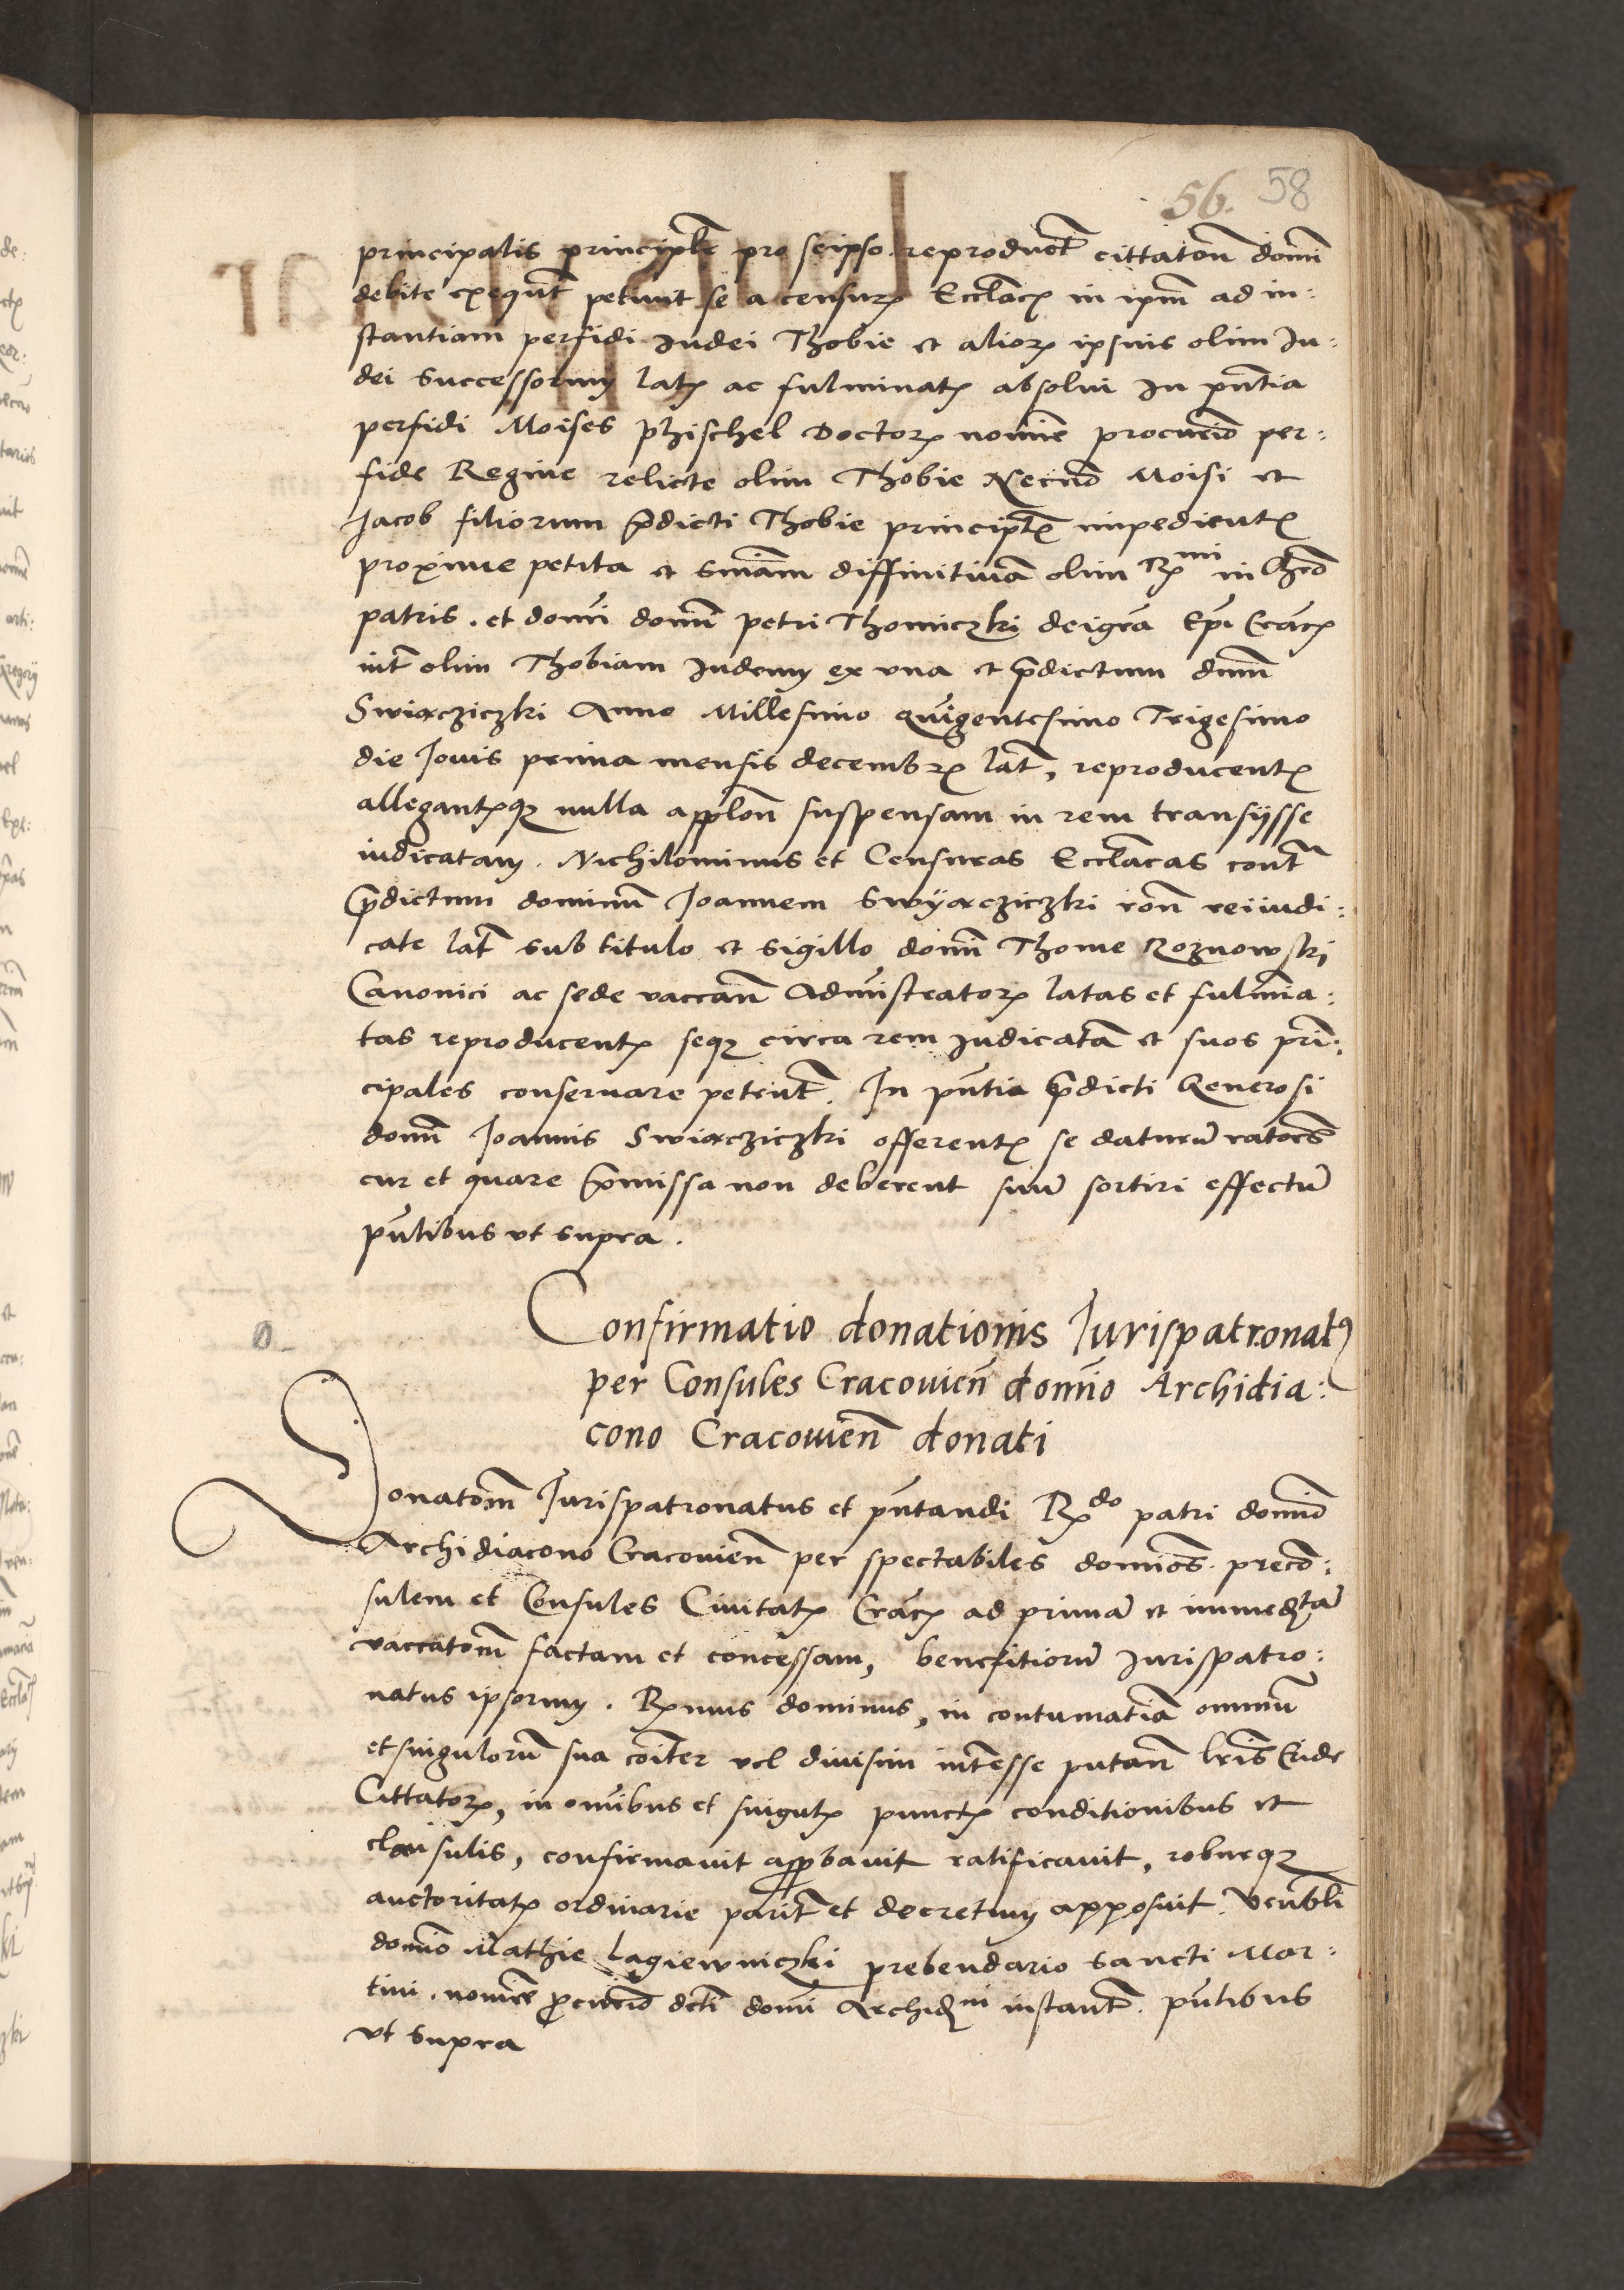 56. 58
principalis principlr pro seipso reproduct cittatom domi
debite exequut petiuit se a censurx Ecclacx in ipm ad in:
stantiam perfidi Judei Thobie et aliorx ipsius olim Ju:
dei successorum latx ac fulminatx absolui In pntia
perfidi Moises Phischel Doctorx nomine procurio per:
fide Regine relicte olim Thobie Necno Moisi et
Jacob filiorum pdicti Thobie principlx impedientx
proxime petita et sniam diffinitiua olim Rx mi in Chro
patris . et domi domi Petri Thomiczki dei gra Epi Cracx
int olim Thobiam Judeum ex vna et pdictum dnum
Swiraczkiczki Anno Millesimo quigentesimo Trigesimo
die Jouis prima mensis decembrx lat, reproducentx
allegantxqz nulla applon suspensam in rem transijsse
iudicatam . Nichilominus et Censuras Ecclacas cont
pdictum dominu Joannem Swyraczkiczki ron rei iudi:
cate lat sub titulo et sigillo domi Thome Roznowski
Canonici ac sede vaccan Admistratorx latas et fulmia:
tas reproducentx seqz circa rem Judicata et suos prin:
cipales conseruare petiut . In pntia pdicti Generosi
domi Joannis Swiraczkiczki offerentx se daturu ratoes
cur et quare pmissa non deberent suu sortiri effectu
pntibus vt supra .
Confirmatio donationis Jurispatronatus
per Consules Cracouien domino Archidia:
cono Cracouien donati
Donatom Jurispatronatus et pntandi Rx do patri domio
Archidiacono Cracouien per spectabiles domios preco:
sulem et Consules Ciuitatx Cracx ad prima et immedta
vaccatom factam et concessam, benefitioru Jurispatro:
natus ipsorum . Rxmus dominus, in contumatia omniu
et singuloru sua coiter vel diuisim interesse putan lris Eide
Cittatorx, in omibus et singulx punctx conditionibus et
clausulis, confirmauit approbauit ratificauit, roburqz
auctoritatx ordinarie parit et decretum apposuit . Venbli
domio Mathie Lagiewniczki prebendario sancti Mar:
tini . nomie procurio dcti domi Archid ni instant . pntibus
vt supra